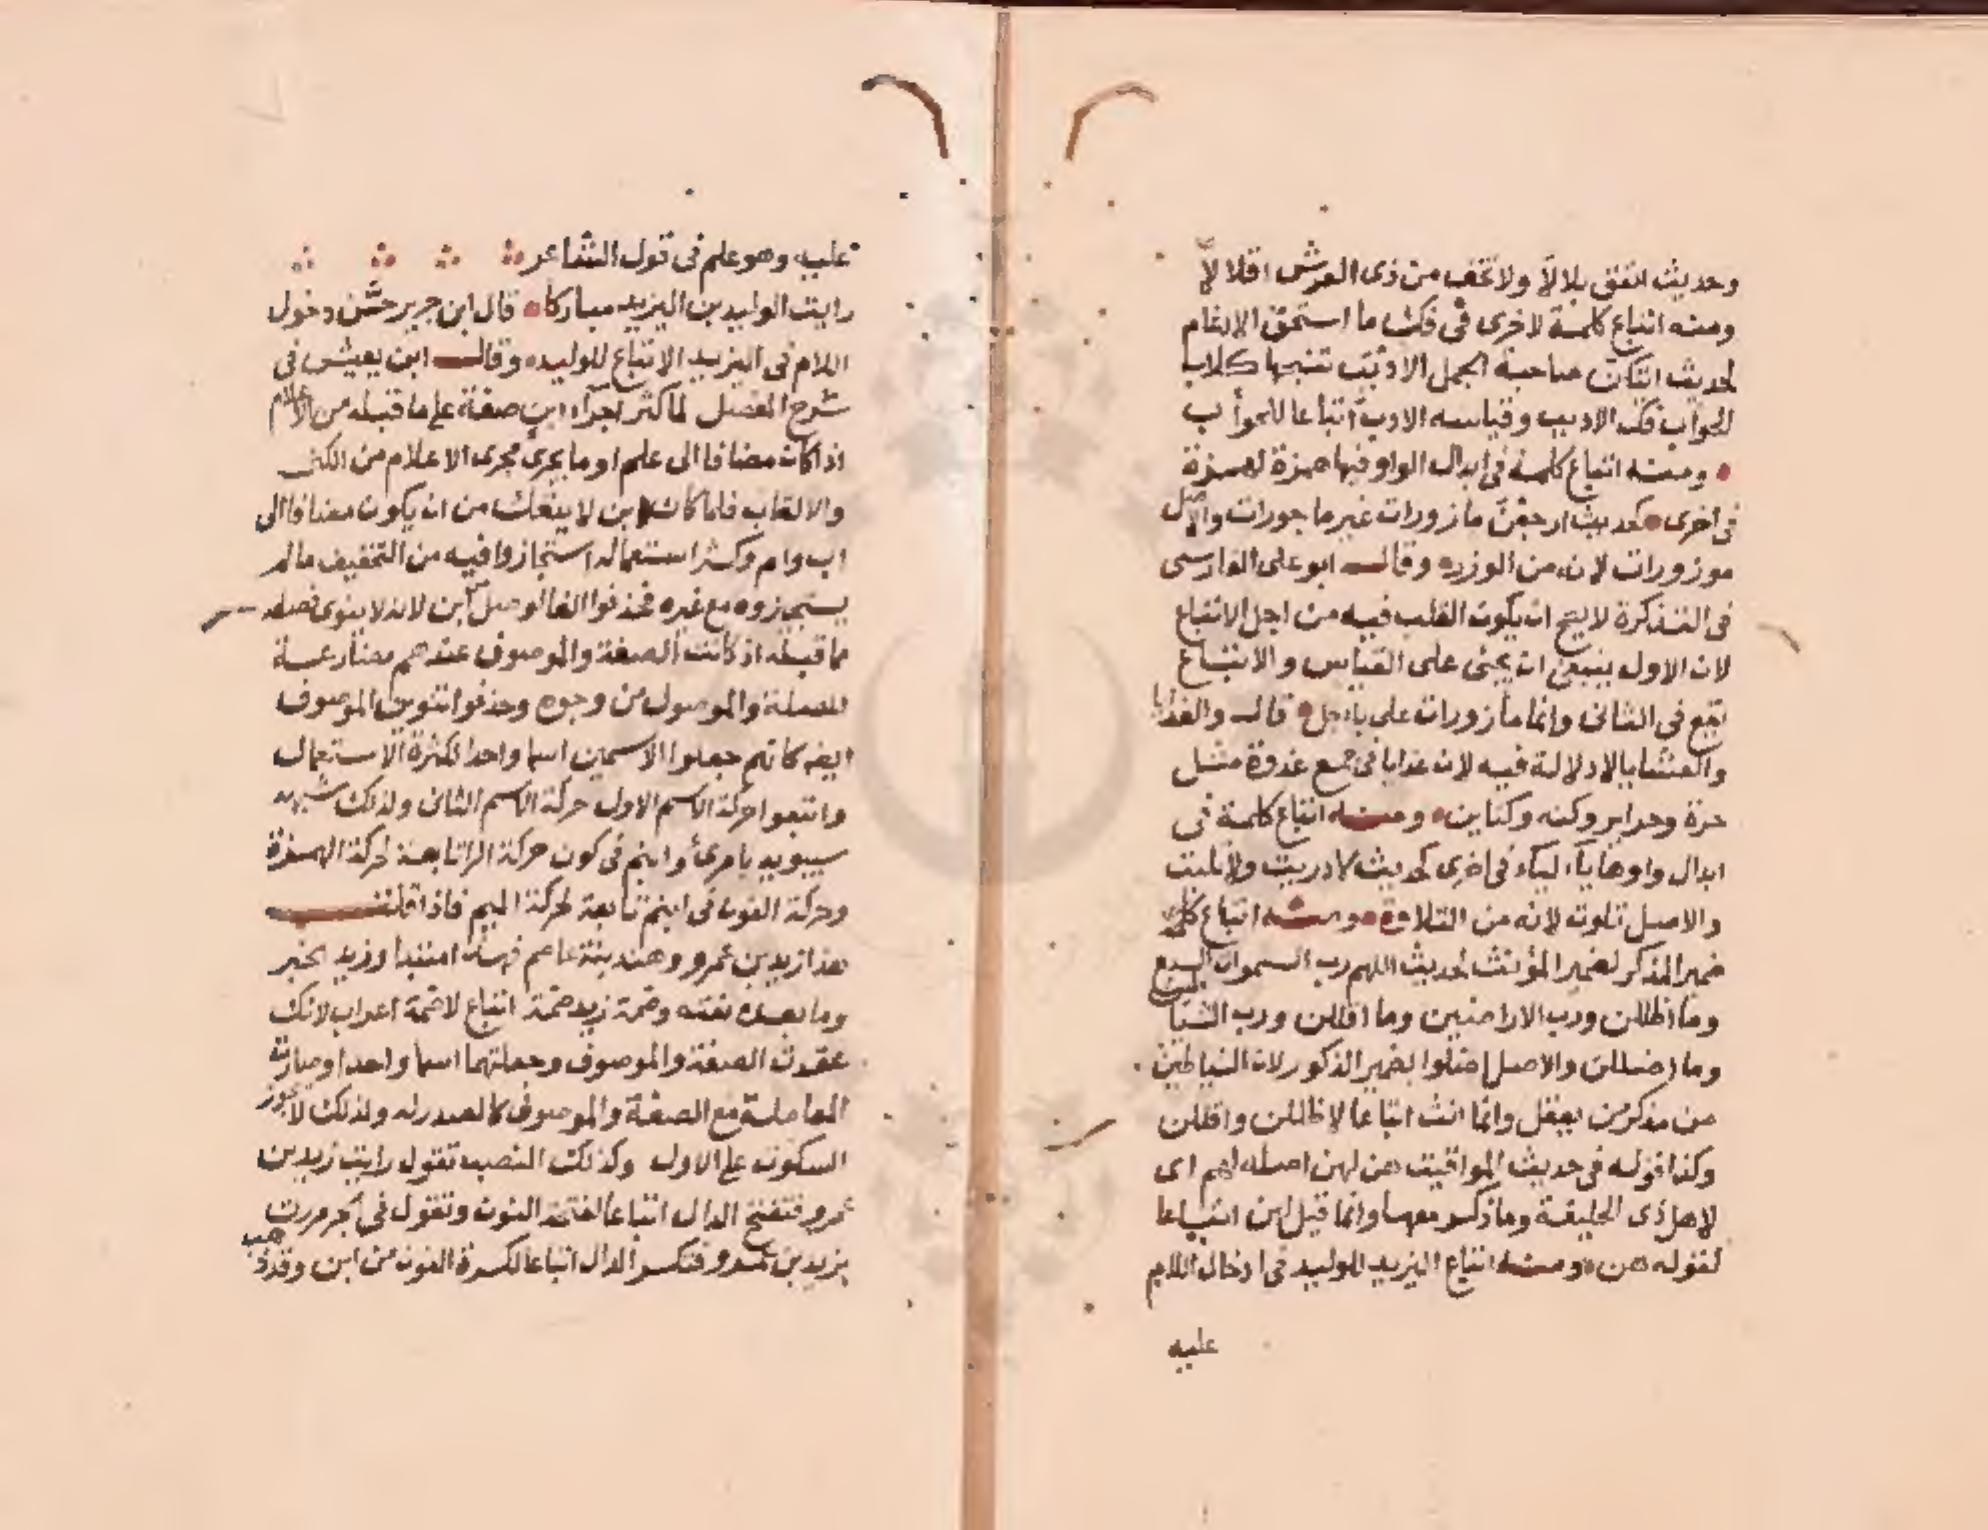 وحديث انفق بلالا ولا تخف من ذى العرش اقلالا
ومنه اتباع كلمة لاخرى فى فك ما استحق الادغام
لحديث ايتكن صاحبة الجمل الادبب تنبحها كلاب
الحوأب فك الادبب وقياسه الادب اتباعا للحوأب
ومنه اتباع كلمة فى ابدال الواو فيها همزة لهمزة
فى اخرى كحديث ارجعن مازورات غير ماجورات والاصل
موزورات لانه من الوزر وقال ابو على الفارسى
فى التذكرة لا يصح ان يكون القلب فيه من اجل الاتباع
لان الاول ينبغى ان يجئ على القياس والاتباع
يقع فى الثانى وانما مازورات على ياجل قال والغدايا
والعشايا لا دلالة فيه لان غدايا فى جمع غدوة مثل
حرة وحراير وكنه وكناين ومنه اتباع كلمة فى
ابدال واوها ياء لياء فى اخرى كحديث لا دريت ولا تليت
والاصل تلوت لانه من التلاوة ومنه اتباع كلمة
ضمير المذكر لضمير المؤنث لحديث اللهم رب السموات السبع
وما اظللن ورب الاراضين وما اقللن ورب الشياطين
وما اضللن والاصل اضلوا بضمير الذكور لان الشياطين
من مذكر من يعقل وانما انث اتباعا لاظللن واقللن
وكذا قوله فى حديث المواقيت هن لهن اصله لهم اى
لاهل ذى الحليفة وما ذكر معها وانما قيل لهن اتباعا
لقوله هن ومنه اتباع اليزيد للوليد فى ادخال اللام
عليه
عليه وهو علم فى قول الشاعر
رايت الوليد بن اليزيد مباركا قال ابن جرير حسن دخول
اللام فى اليزيد الاتباع للوليد وقال ابن يعيش فى
شرح المفصل لما كثر اجراء ابن صفة على ما قبله من الاعلام
اذا كان مضافا الى علم او ما يجرى مجرى الاعلام من الكنى
والالقاب فلما كان ابن لا ينفك من ان يكون مضافا الى
اب وام وكثر استعماله استجازوا فيه من التخفيف ما لم
يستجيزوه مع غيره فحذفوا الف الوصل من ابن لانه لا ينوى فصله
مما قبله اذ كانت الصفة والموصوف عندهم مضارعة
للصلة والموصول من وجوه وحذفوا تنوين الموصوف
ايضا كانهم جعلوا الاسمين اسما واحدا لكثرة الاستعمال
واتبعوا حركة الاسم الاول حركة الاسم الثانى ولذلك شبهه
سيبويه بامرئ وابنم فى كون حركة الرا تابعة لحركة الهمزة
وحركة النون فى ابنم تابعة لحركة الميم فاذا قلت
هذا زيد بن عمرو وهند بنة عاصم فهذا مبتدا وزيد الخبر
وما بعده نعته وضمة زيد ضمة اتباع لا ضمة اعراب لانك
عقدت الصفة والموصوف وجعلتهما اسما واحدا وصارت
المعاملة مع الصفة والموصوف كالصدر له ولذلك لا يجوز
السكون على الاول وكذلك النصب تقول رايت زيد بن
عمرو فتفتح الدال اتباعا لفتحة النون وتقول فى الجر مررت
بزيد بن عمرو فتكسر الدال اتباعا لكسرة النون من ابن وقد ذهب